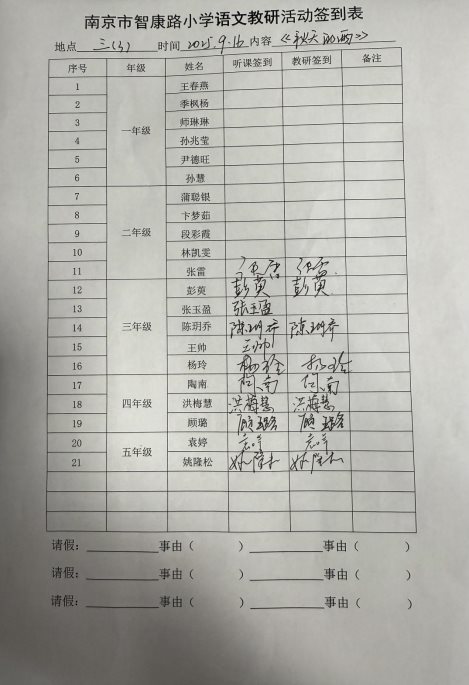 南京市智康路小学语文教研活动签到表
地点 三(3) 时间 2025.9.16 内容 《秋天的雨》
序号 年级 姓名 听课签到 教研签到 备注
1 王春燕
2 季枫杨
3 师琳琳
一年级
4 孙兆莹
5 尹德旺
6 孙慧
7 蒲聪银
8 卞梦茹
二年级
9 段彩霞
10 林凯雯
11 张雷 张雷 张雷
12 彭萸 彭萸 彭萸
13 张玉盈 张玉盈
14 三年级 陈玥乔 陈玥乔 陈玥乔
15 王帅 王帅
16 杨玲 杨玲 杨玲
17 陶南 陶南 陶南
18 四年级 洪梅慧 洪梅慧 洪梅慧
19 顾璐 顾璐 顾璐
20 袁婷 袁婷 袁婷
五年级
21 姚隆松 姚隆松 姚隆松
请假: 事由( ) ( )
请假: 事由( ) ( )
请假: 事由( ) ( )